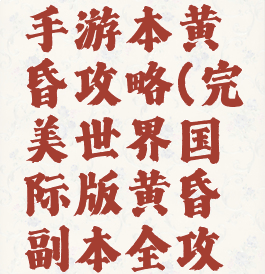 手游本黄
昏攻略(完
美世界国
际版黄昏
副本全攻